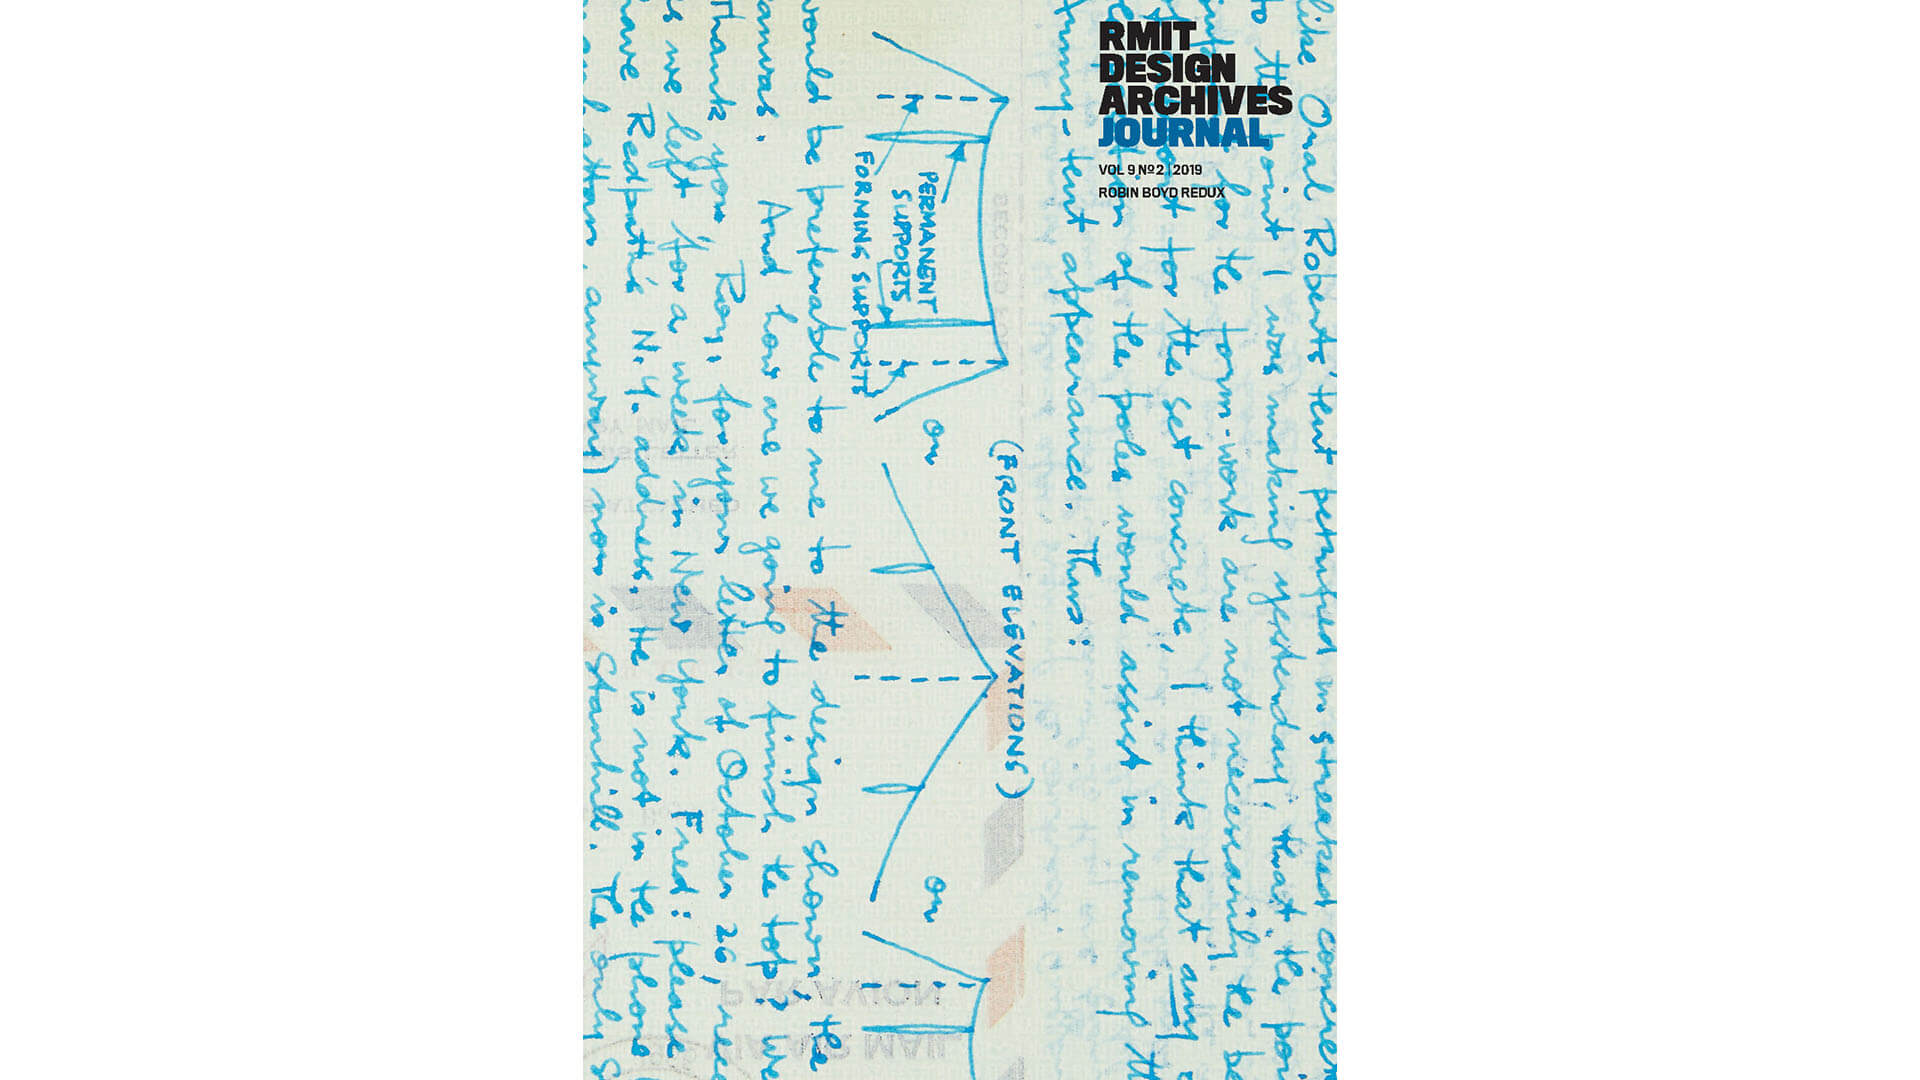 RMIT
DESIGN
ARCHIVES
JOURNAL
VOL 9 Nº2 | 2019
ROBIN BOYD REDUX
like Oral Roberts' tent petrified in streaked concre
to the point I was making yesterday, that the poi
for the form-work are not necessarily the be
for the set concrete, I think that any
of the poles would assist in removing th
tent appearance. Thus:
(FRONT ELEVATIONS)
or
or
PERMANENT
SUPPORTS
FORMING SUPPORTS
would be preferable to me to the design shown; the
canvas. And how are we going to finish the top? We
Thank you Roy, for your letter of October 26, rec
as we left for a week in New York. Fred: please
have N.Y. address. He is not in the phone
anyway) now is Stanhill. The only s
SECOND
PAR AVION
VIA AIR MAIL